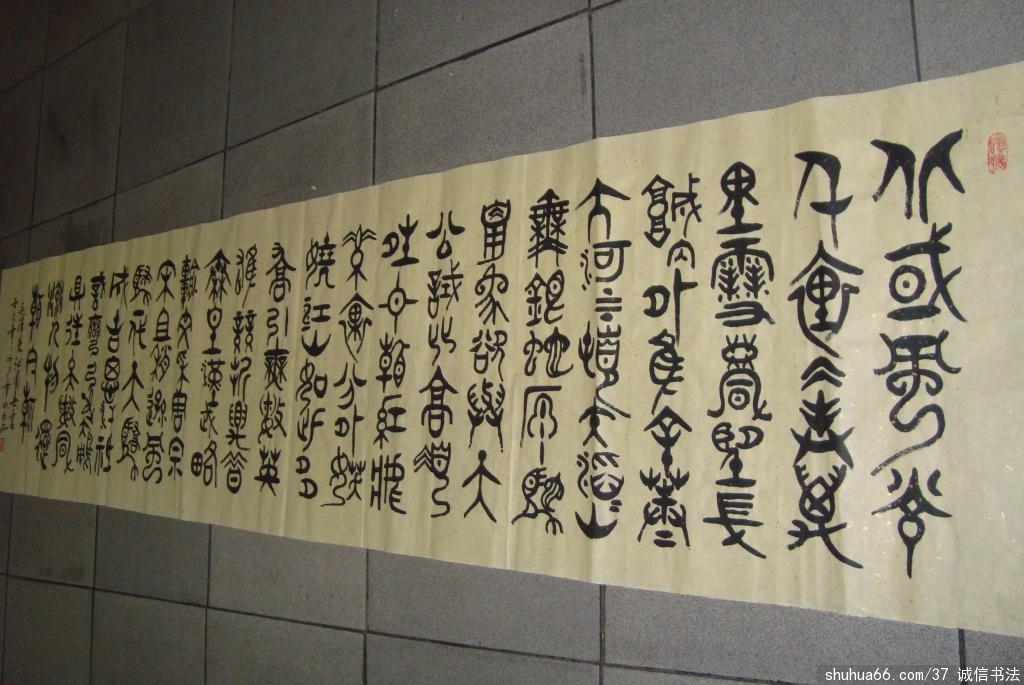 北國風光
千里冰封萬
里雪飄望長
城內外惟余莽莽
大河上下頓失滔滔山
舞銀蛇原馳
蠟象欲與天
公試比高須
晴日看紅裝
素裹分外妖
嬈江山如此多
嬌引無數英
雄競折腰昔
秦皇漢武略
輸文采唐宗
宋祖稍遜風
騷一代天驕
成吉思汗只識
彎弓射大雕
俱往矣數風
流人物還
看今朝
shuhua66.com/37 诚信书法